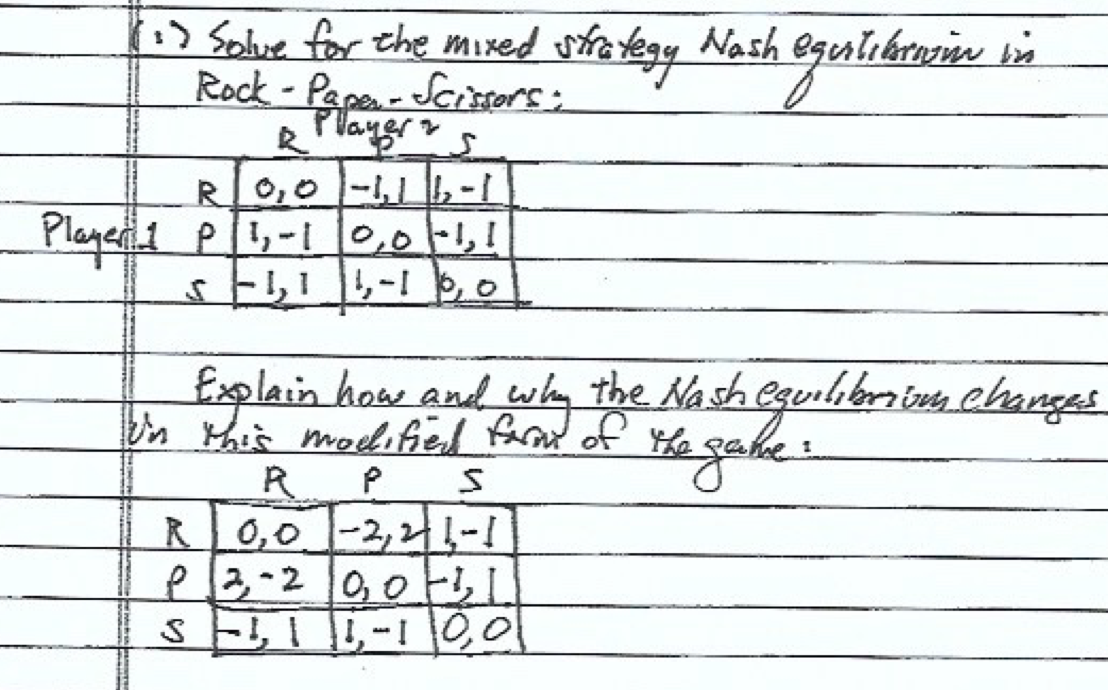 (1) Solve for the mixed strategy Nash equilibrium in
Rock-Paper-Scissors:
Player 2
R P S
R 0,0 -1,1 1,-1
Player 1 P 1,-1 0,0 -1,1
S -1,1 1,-1 0,0
Explain how and why the Nash equilibrium changes
in this modified form of the game:
R P S
R 0,0 -2,2 1,-1
P 2,-2 0,0 -1,1
S -1,1 1,-1 0,0